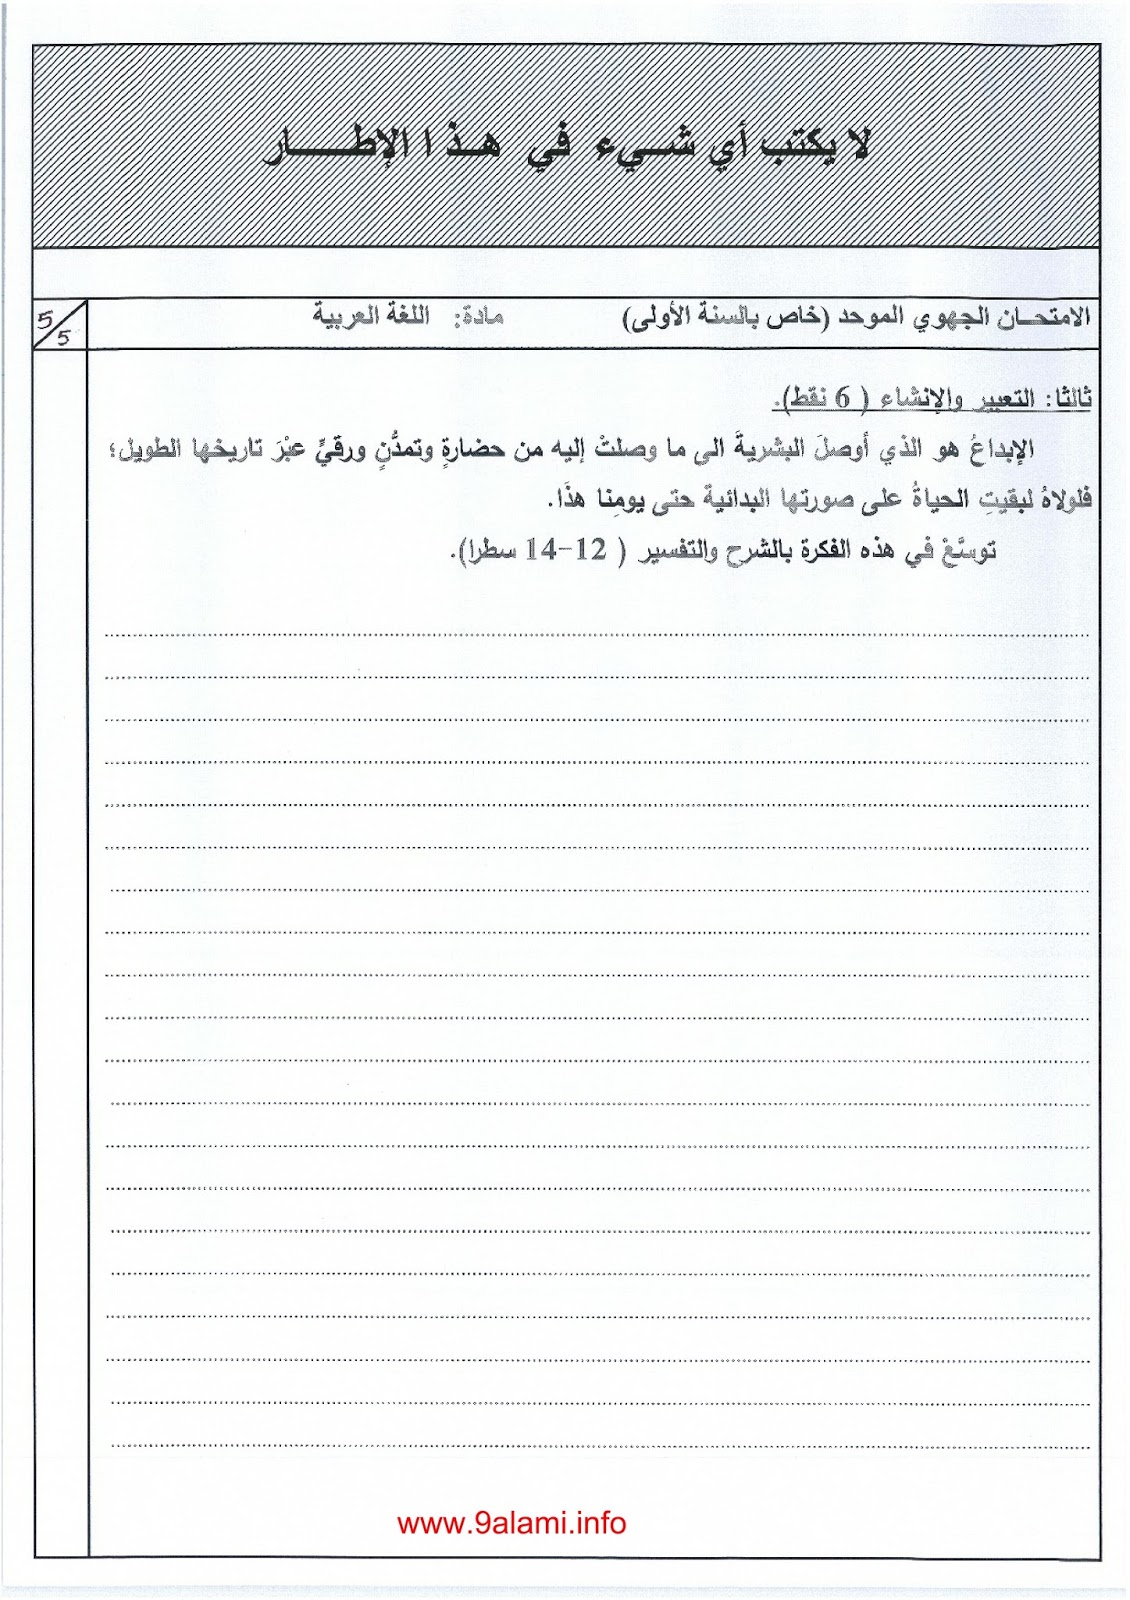 لا يكتب أي شيء في هذا الإطار
الامتحان الجهوي الموحد (خاص بالسنة الأولى) مادة: اللغة العربية 5/5
ثالثا: التعبير والإنشاء ( 6 نقط).
الإبداعُ هو الذي أوصلَ البشريةَ الى ما وصلتْ إليه من حضارةٍ وتمدُّنٍ ورقيٍّ عبْرَ تاريخها الطويل؛
فلولاهُ لبقيتِ الحياةُ على صورتها البدائية حتى يومِنا هذَا.
توسَّعْ في هذه الفكرة بالشرح والتفسير ( 12-14 سطرا).
www.9alami.info